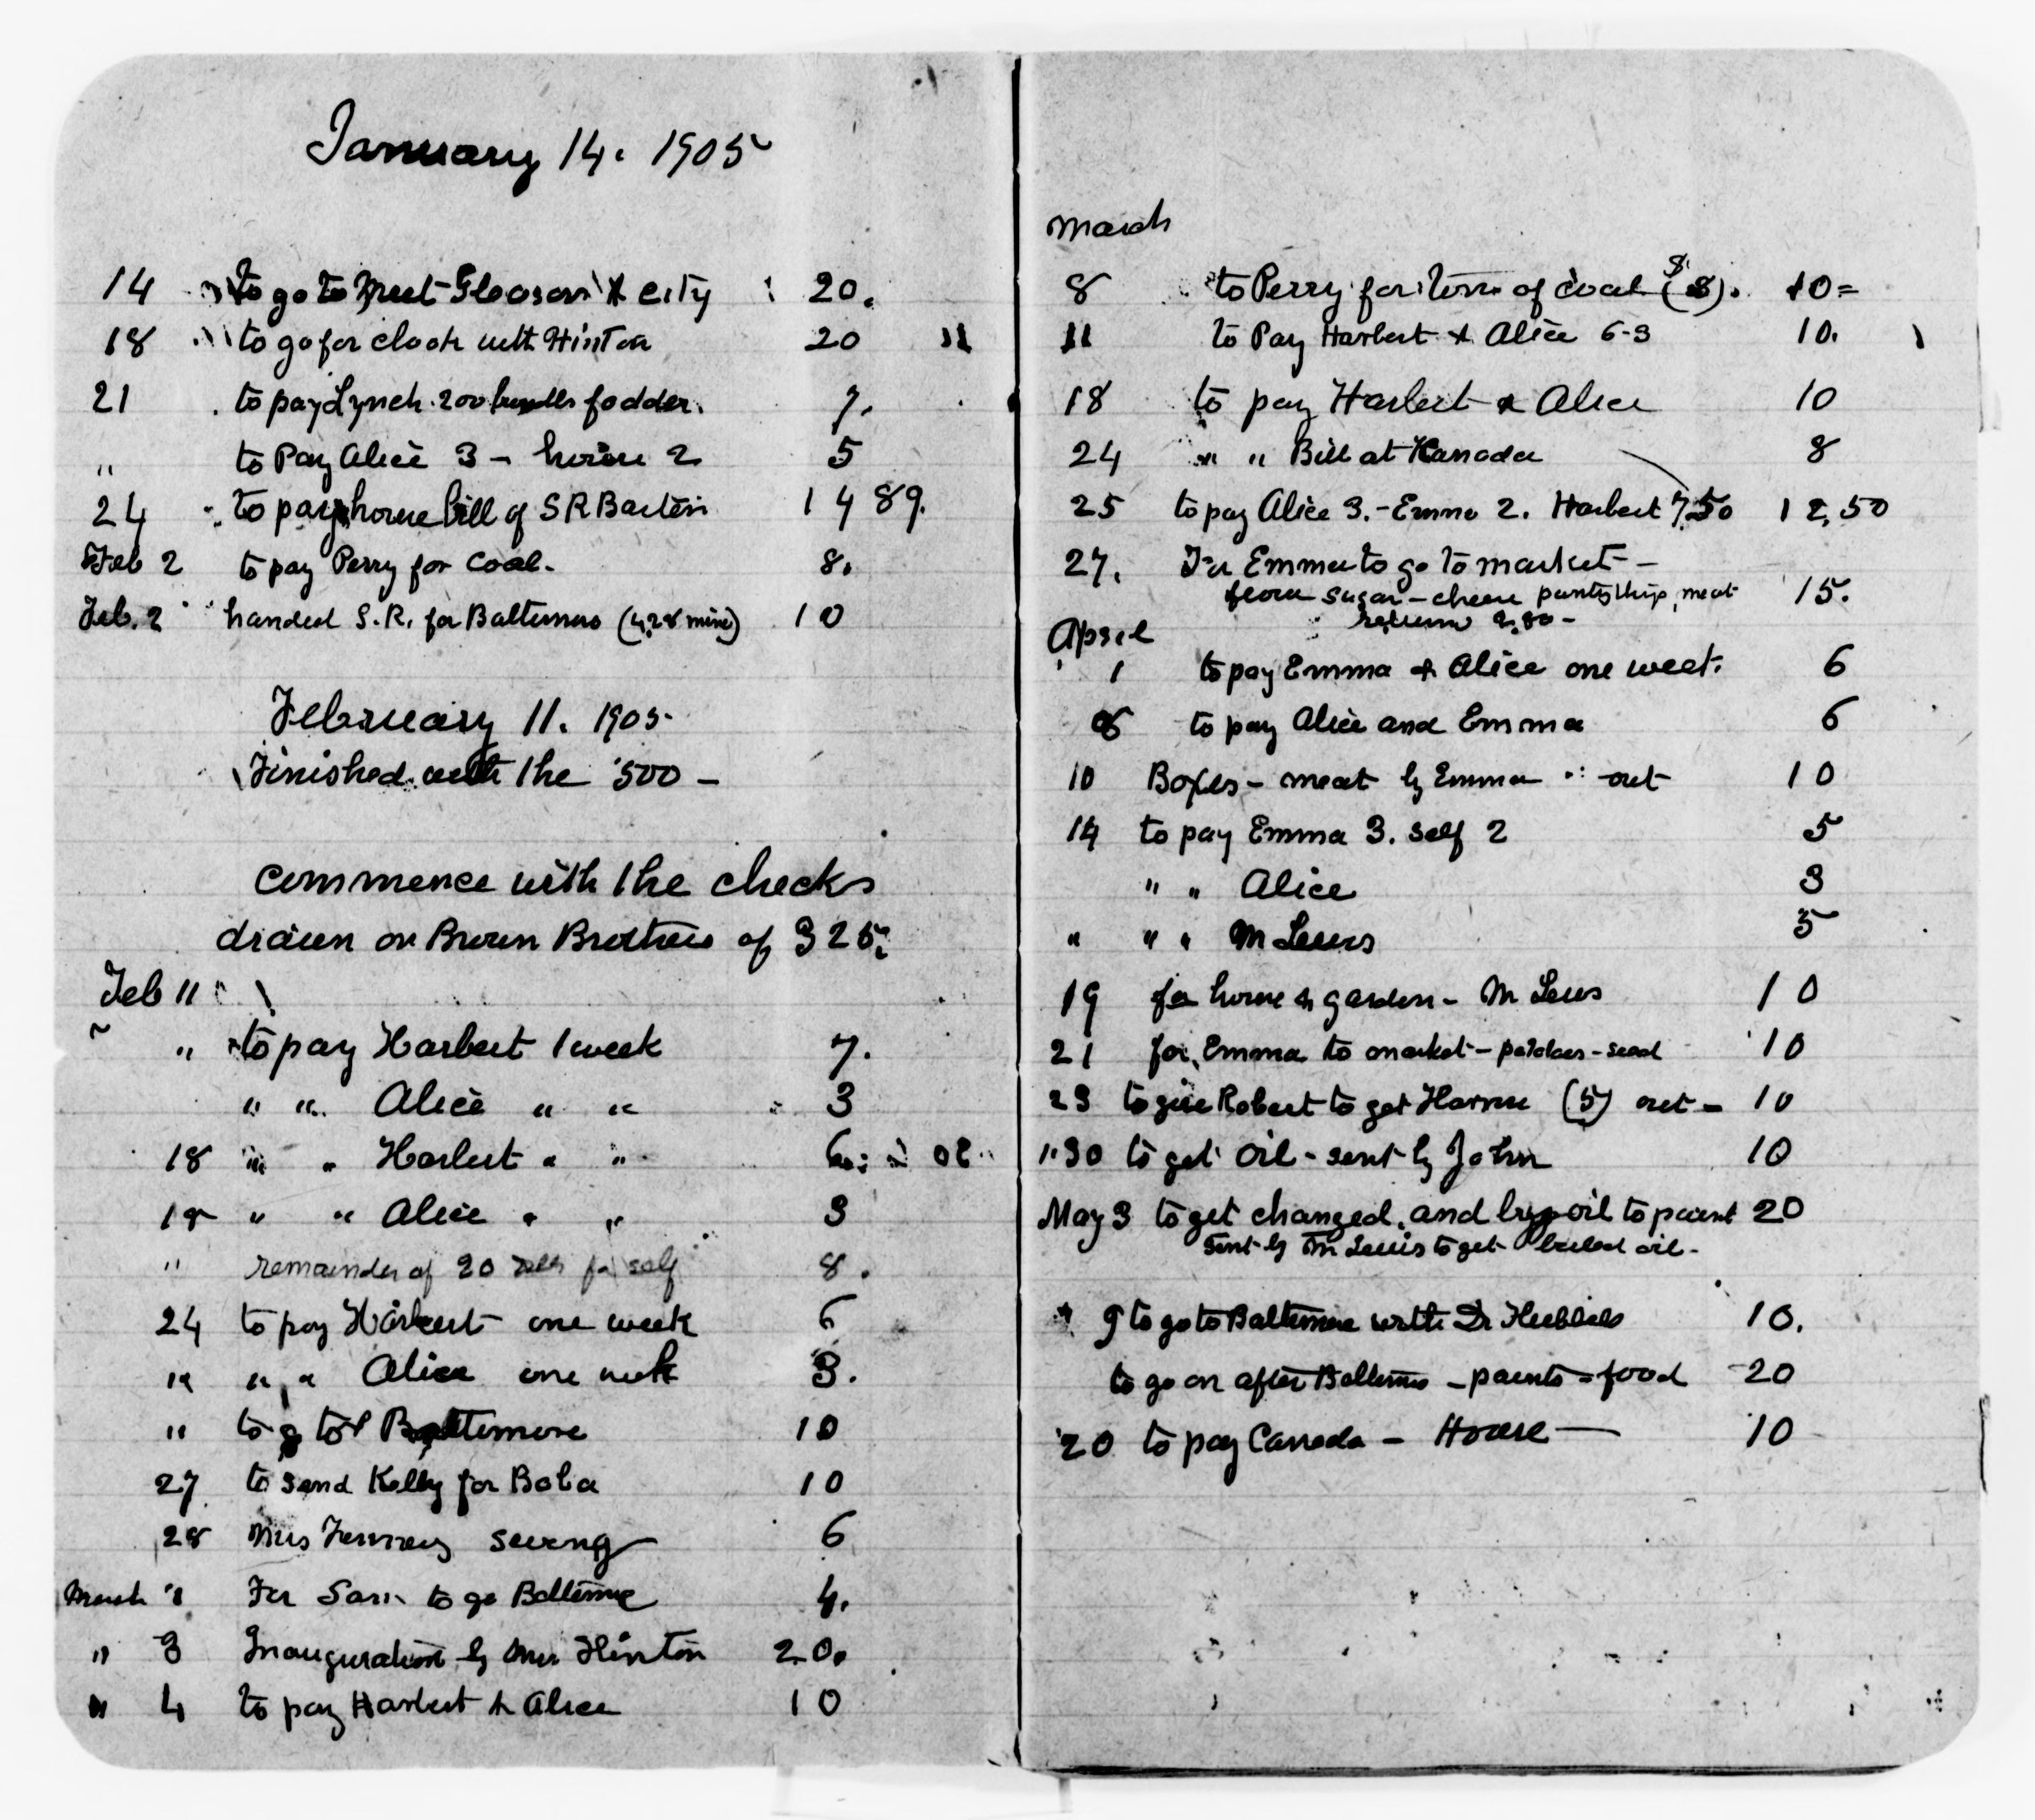 January 14. 1905
14 to go to meet Gleason & city 20.
18 to go for cloak with Hinton 20
21 to pay Lynch 200 bundles fodder. 7.
" to Pay Alice 3 - 2 5
24 to pay house bill of S R Barton 14 89.
Feb 2 to pay Perry for coal. 8.
Feb. 2 handed S. R. for Baltimore (4,28 mine) 10
February 11. 1905.
Finished with the 500 -
commence with the checks
drawn on Brown Brothers of 325.
Feb 11
" to pay Harbert 1 week 7.
" " Alice " " 3
18 " " Harbert " " 6
18 " " Alice " " 3
" remainder of 20 for self 8.
24 to pay Harbert one week 6
" " " Alice one week 3.
" to go to Baltimore 10
27 to send Kelly for Baba 10
28 Mrs sewing 6
March 1 For to go Baltimore 4.
" 3 Inauguration by Mrs Hinton 20.
" 4 to pay Harbert & Alice 10
March
8 to Perry for tons of coal (8). 10=
11 to Pay Harbert & Alice 6-3 10.
18 to pay Harbert & Alice 10
24 " " Bill at Kanada 8
25 to pay Alice 3.- Emma 2. Harbert 7.50 12,50
27. For Emma to go to market -
flour sugar - cheese meat 15.
return 2,80 -
April
1 to pay Emma & Alice one week. 6
8 to pay Alice and Emma 6
10 Boxes - meat by Emma - out 10
14 to pay Emma 3. self 2 5
" " Alice 3
" " " M Lewis 5
19 for house & garden - M Lewis 10
21 for Emma to market - potatoes - seed 10
23 to give Robert to get Harness (5) out - 10
" 30 to get oil - sent by John 10
May 3 to get changed. and buy oil to paint 20
sent by M Lewis to get boiled oil -
" 9 to go to Baltimore with Dr Hubbell 10.
to go on after Baltimore - paints - food 20
20 to pay Canada - House - 10